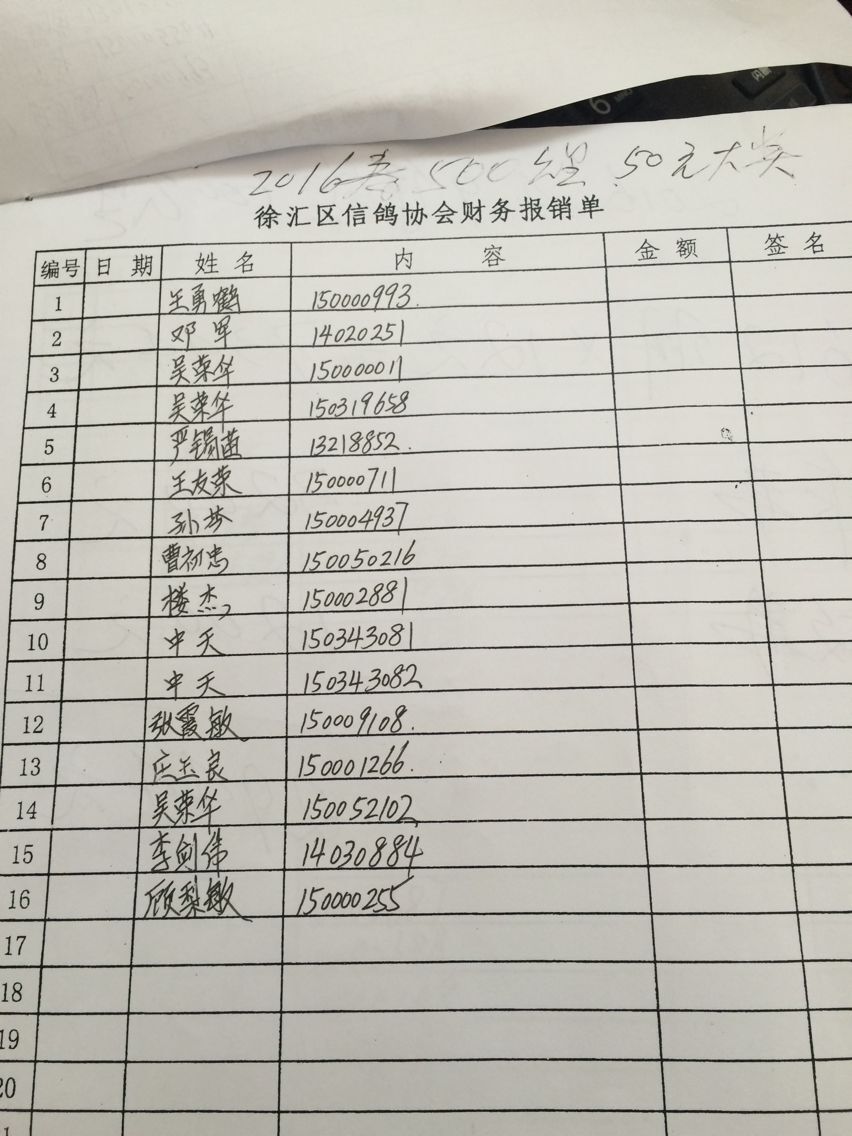 2016春500公里 50元大奖
徐汇区信鸽协会财务报销单
编号 日 期 姓 名 内 容 金 额 签 名
1 王勇鹤 150000993.
2 邓 早 14020251
3 吴荣华 150000011
4 吴荣华 150319658
5 严锡苗 13218852.
6 王友荣 150000711
7 孙 150004937
8 曹初忠 150050216
9 楼杰 150002881
10 中天 150343081
11 中天 150343082
12 张霞敏 150009108.
13 庄玉良 150001266.
14 吴荣华 150052102
15 李剑伟 14030884
16 顾梨敏 150000255
17
18
19
20